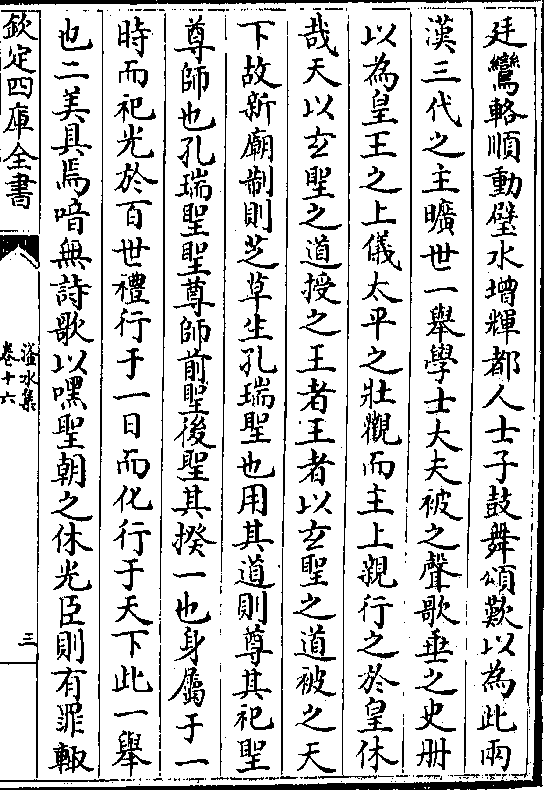 廷鸞輅順動璧水增輝都人士子鼓舞頌歎以為此兩
漢三代之主曠世一舉學士大夫被之聲歌垂之史册
以為皇王之上儀太平之壯觀而主上親行之於皇休
哉天以玄聖之道授之王者王者以玄聖之道被之天
下故新廟制則芝草生孔瑞聖也用其道則尊其祀聖
尊師也孔瑞聖聖尊師前聖後聖其揆一也身屬于一
時而祀光於百世禮行于一日而化行于天下此一舉
也二美具焉喑無詩歌以嘿聖朝之休光臣則有罪輙
欽定四庫全書
滏水集
卷十六
三